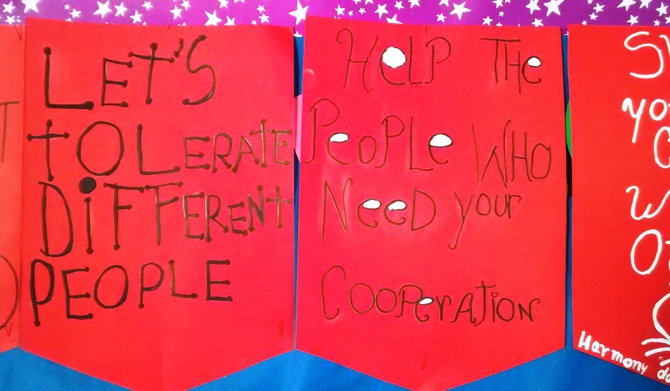 LET'S
TOLERATE
DiFFERENT
PEOPLE
HeLP THe
PeoPLe WHO
NeeD your
COOPeration
Harmony da